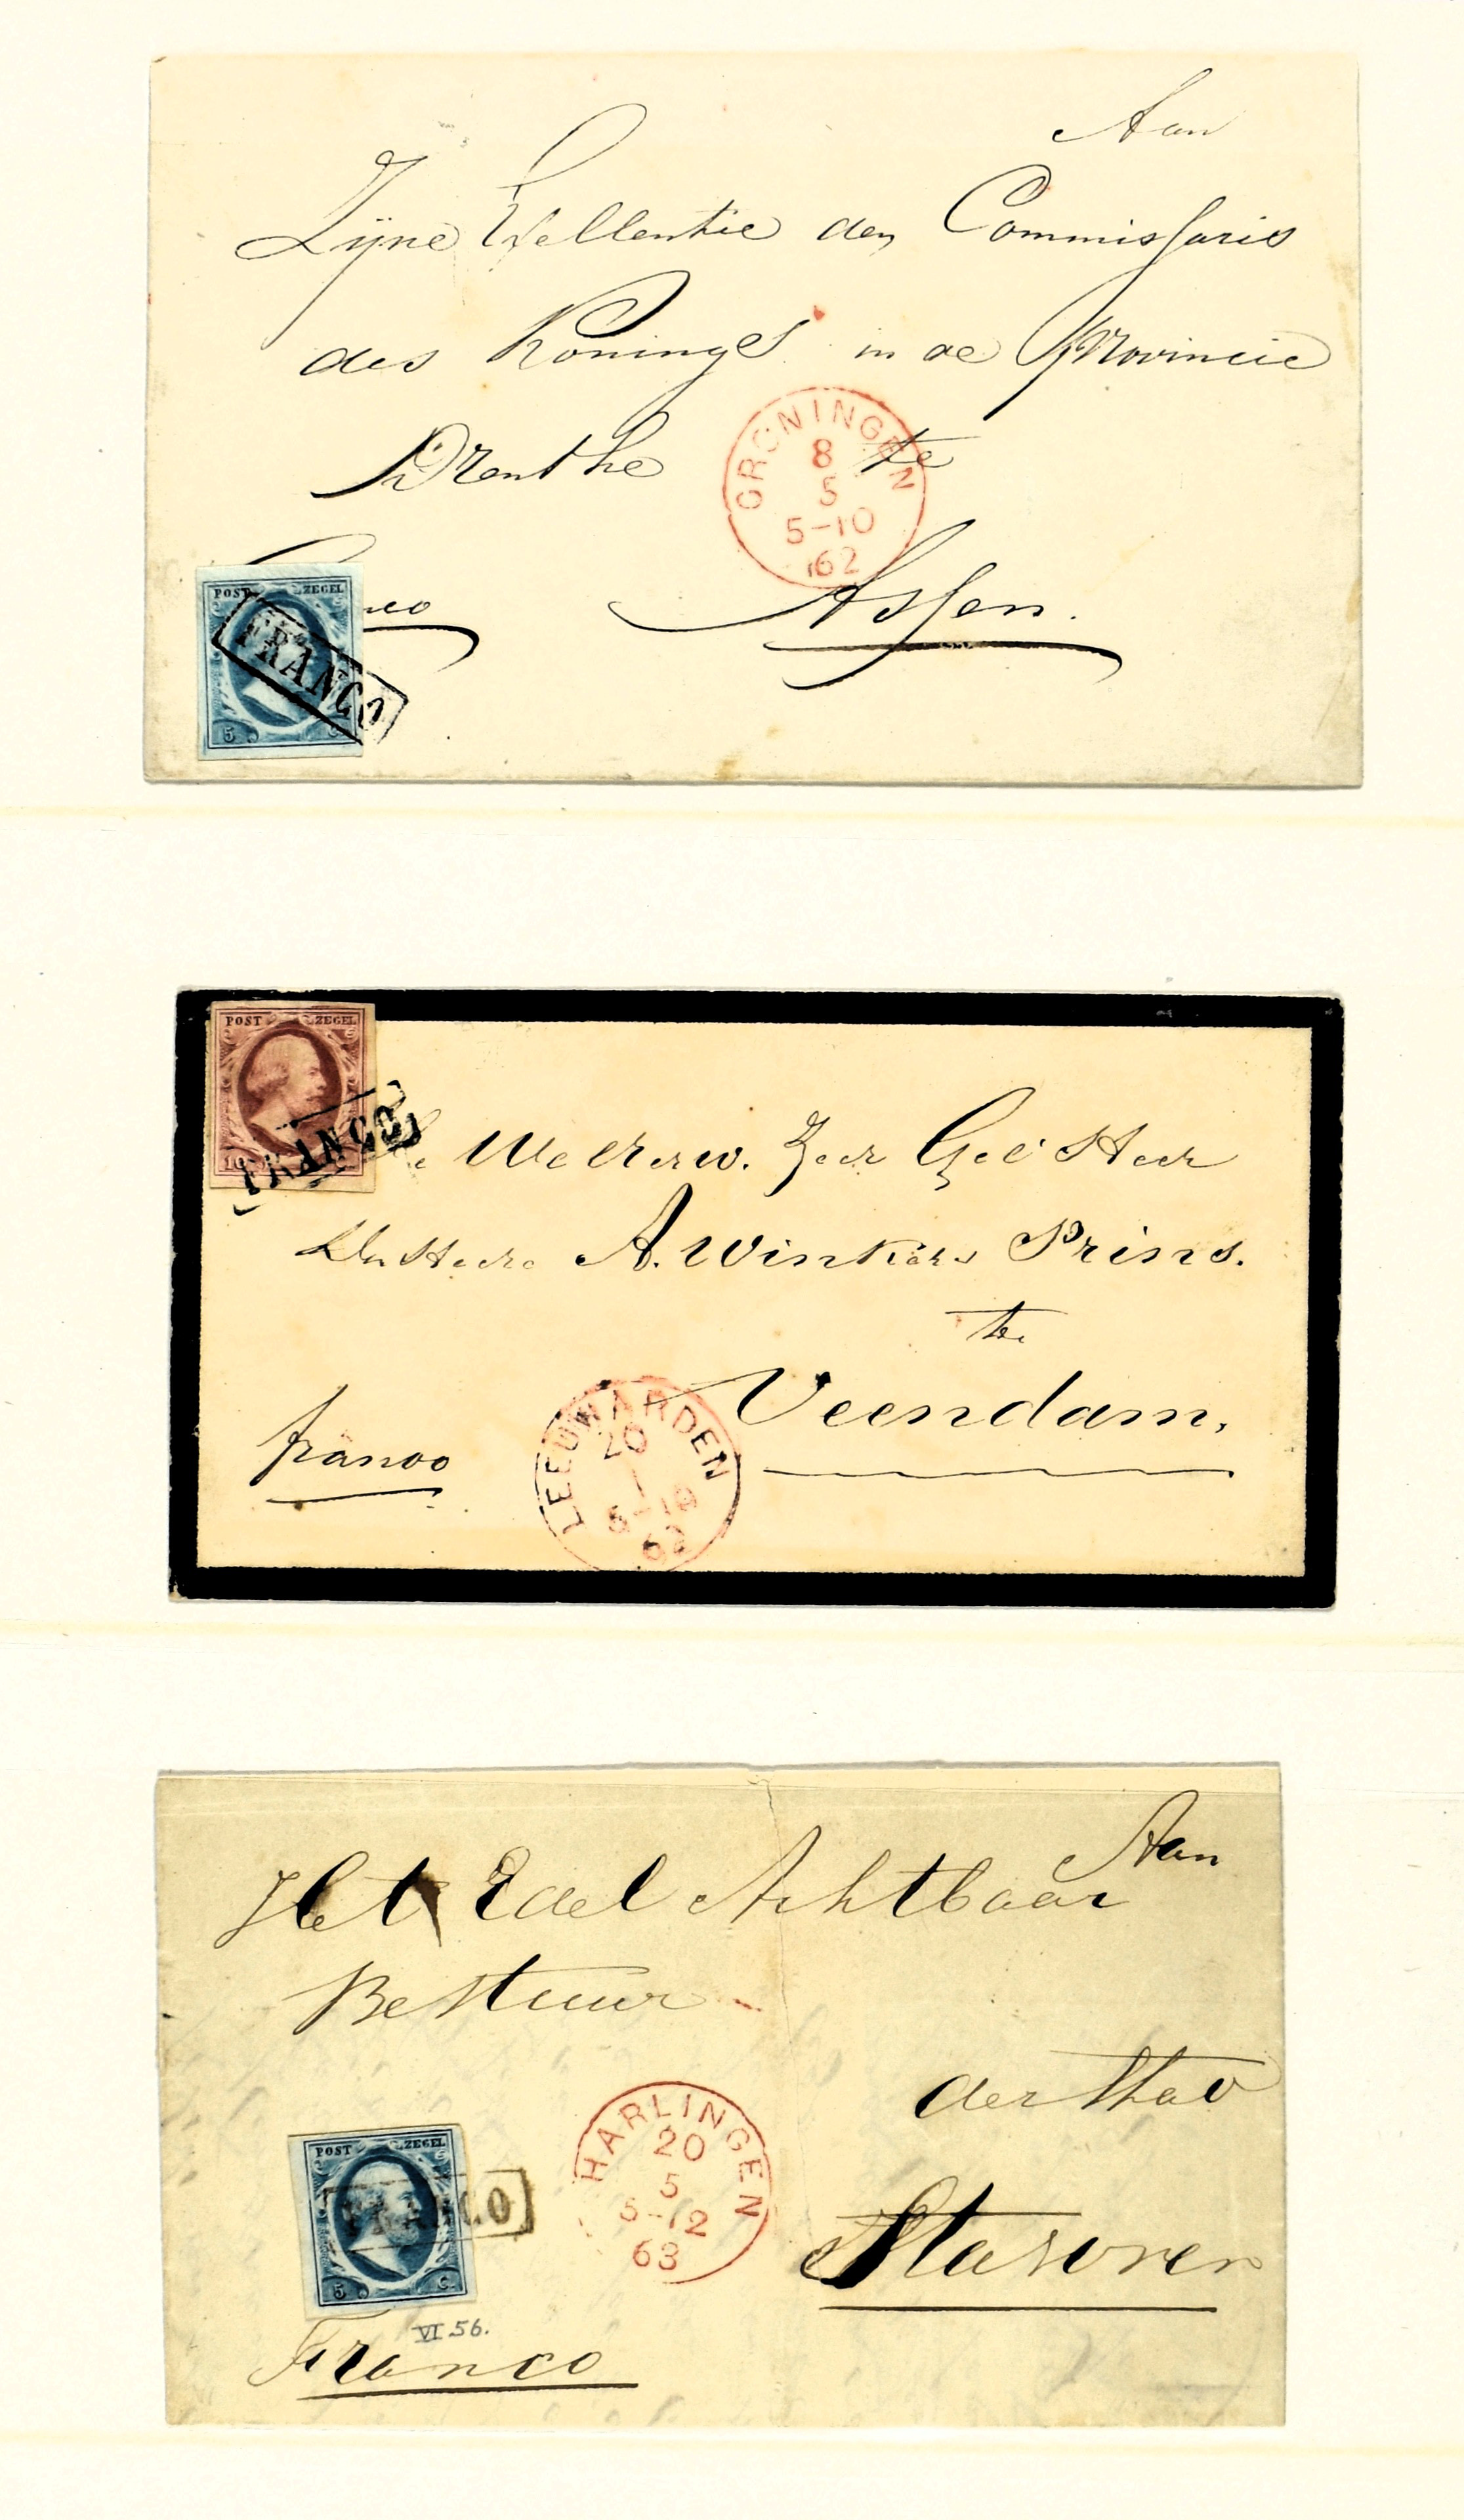 Aan
Zijne Excellentie den Commissaris
des Konings in de Provincie
Drenthe te
GRONINGEN
8
5
5-10
62
Assen.
POST ZEGEL
FRANCO
5 C.
POST ZEGEL
FRANCO
10
WelEerw. Zeer Gel Heer
Den Heere A. Winkler Prins.
te
Veendam,
franco
LEEUWARDEN
20
1
62
Aan
Het Edel Achtbaar
Bestuur
der Stad
Stavoren
HARLINGEN
20
5
5-12
63
POST ZEGEL
FRANCO
5 C.
VI 56.
Franco